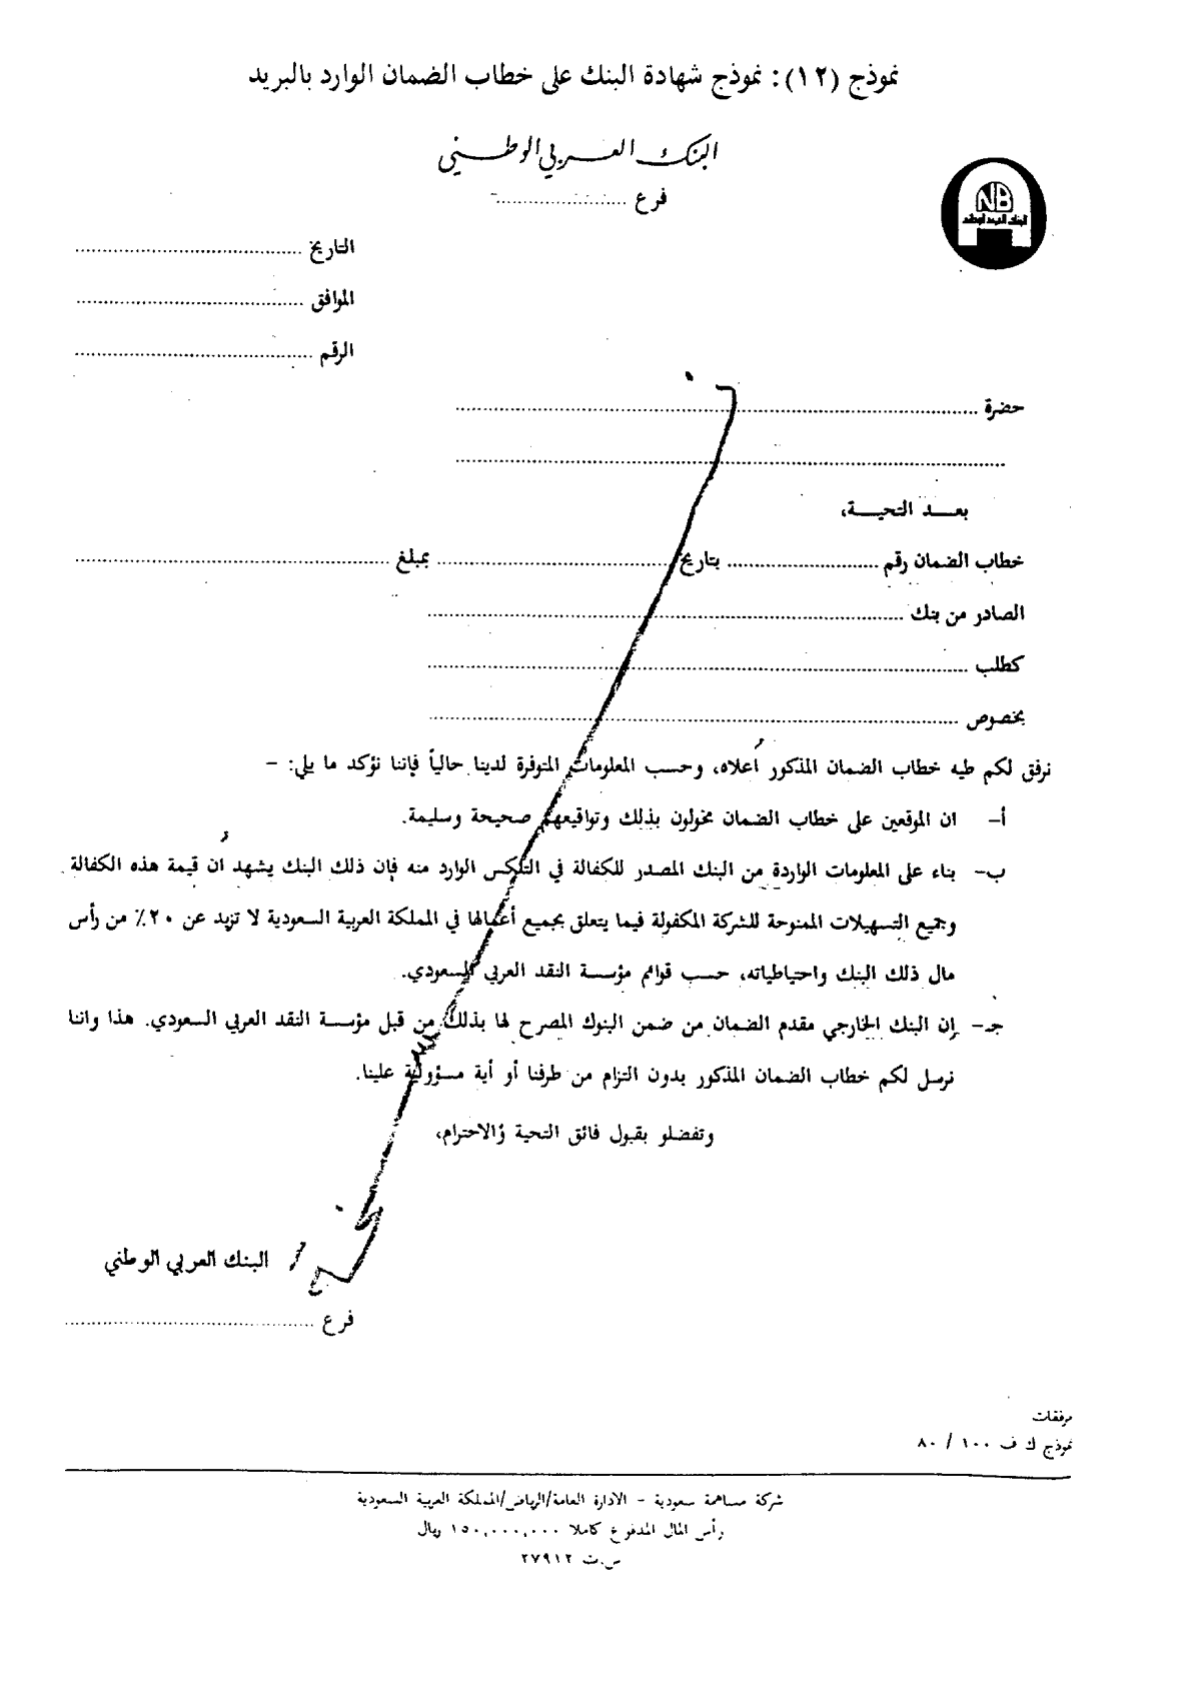 نموذج (١٢): نموذج شهادة البنك على خطاب الضمان الوارد بالبريد
البنك العربي الوطني
فرع ..........................
NB
البنك العربي الوطني
التاريخ ..........................
الموافق ..........................
الرقم ..........................
حضرة ..........................
..........................
بعد التحية،
خطاب الضمان رقم .......................... بتاريخ .......................... بمبلغ ..........................
الصادر من بنك ..........................
كطلب ..........................
بخصوص ..........................
نرفق لكم طيه خطاب الضمان المذكور أعلاه، وحسب المعلومات المتوفرة لدينا حالياً فإننا نؤكد ما يلي: –
أ– ان الموقعين على خطاب الضمان مخولون بذلك وتواقيعهم صحيحة وسليمة.
ب– بناء على المعلومات الواردة من البنك المصدر للكفالة في التلكس الوارد منه فإن ذلك البنك يشهد أن قيمة هذه الكفالة
وجميع التسهيلات الممنوحة للشركة المكفولة فيما يتعلق بجميع أعمالها في المملكة العربية السعودية لا تزيد عن ٢٠٪ من رأس
مال ذلك البنك واحتياطياته، حسب قوائم مؤسسة النقد العربي السعودي.
جـ– إن البنك الخارجي مقدم الضمان من ضمن البنوك المصرح لها بذلك من قبل مؤسسة النقد العربي السعودي. هذا واننا
نرسل لكم خطاب الضمان المذكور بدون التزام من طرفنا أو أية مسؤولية علينا.
وتفضلو بقبول فائق التحية والاحترام،
البنك العربي الوطني
فرع ..........................
مرفقات
نموذج ك ف ١٠٠ / ٨٠
شركة مساهمة سعودية – الادارة العامة/الرياض/المملكة العربية السعودية
رأس المال المدفوع كاملا ١٥٠,٠٠٠,٠٠٠ ريال
س.ت ٢٧٩١٢